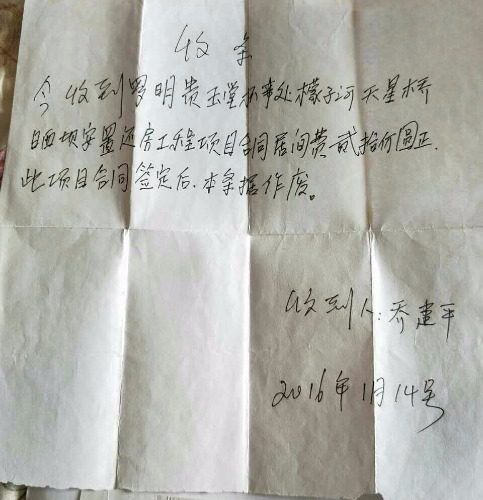 收条
今收到罗明贵玉堂办事处檬子河天星桥
自西坝安置还房工程项目合同居间费贰拾何圆正.
此项目合同签定后.本条据作废。
收到人:乔建平
2016年1月14号